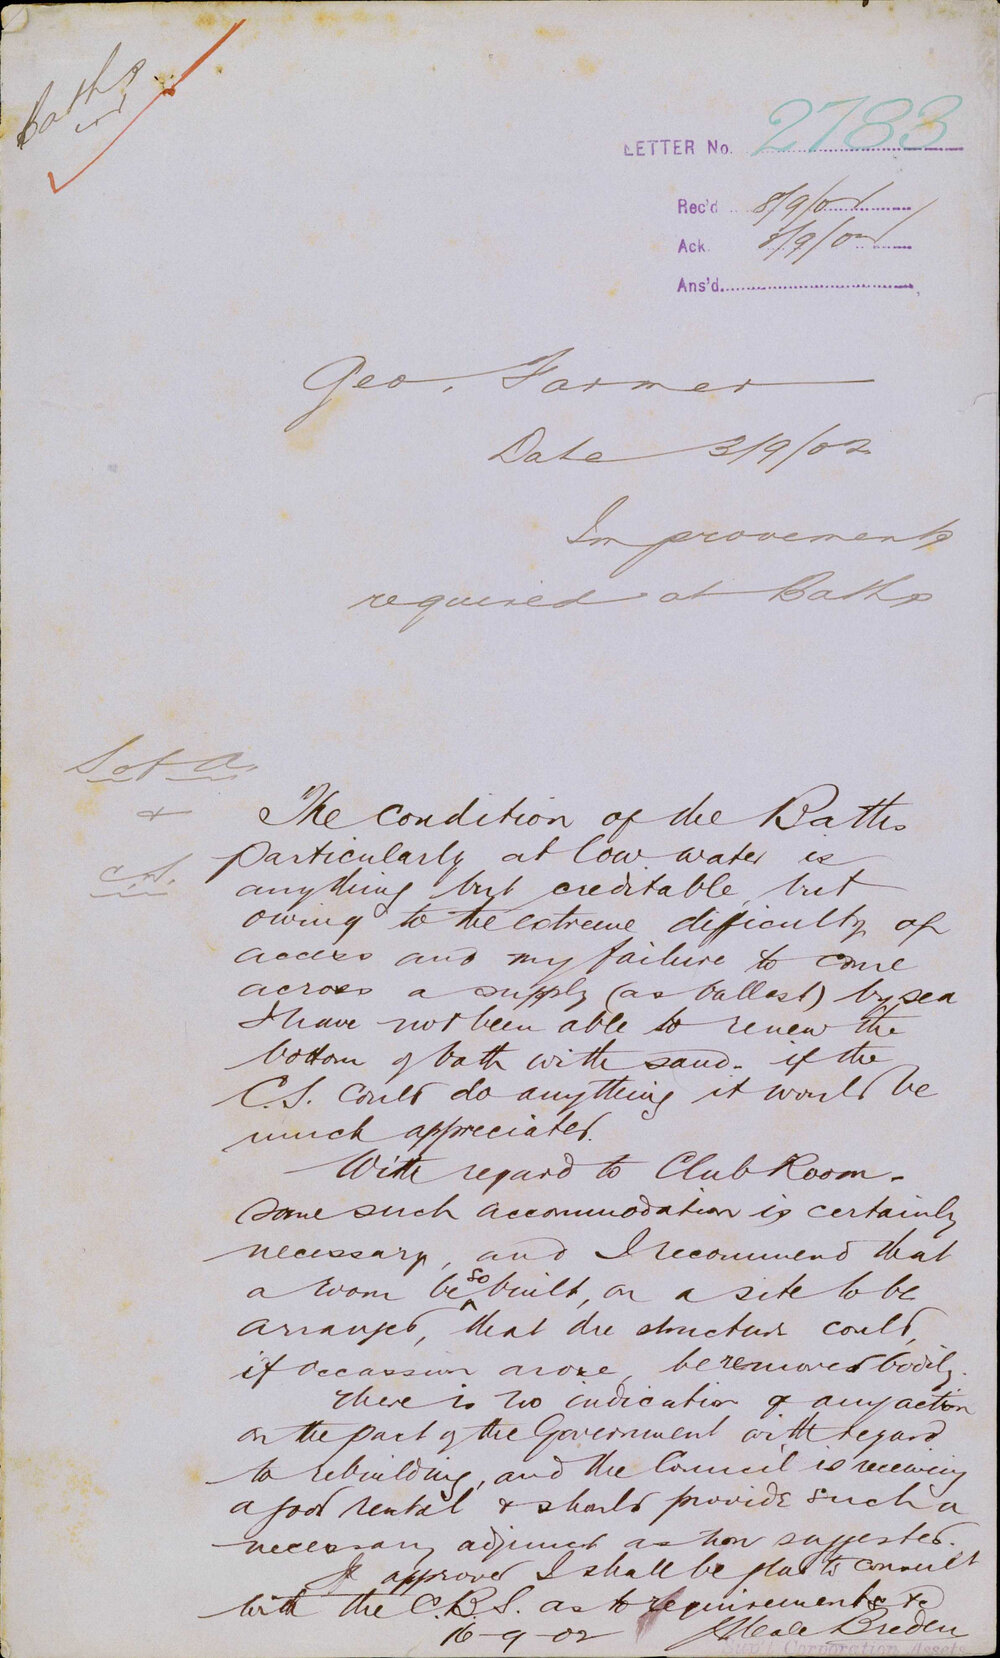 Baths
LETTER No. 2783
Rec'd 8/9/02
Ack 8/9/02
Ans'd
Geo. Farmer
Date 3/9/02
Improvements
required at Baths
&
The condition of the Baths
particularly at low water is
anything but creditable, but
owing to the extreme difficulty of
access and my failure to come
across a supply (as ballast) by sea
I have not been able to renew the
bottom of bath with sand. if the
C.S. could do anything it would be
much appreciated.
With regard to Club Room -
some such accommodation is certainly
necessary, and I recommend that
a room be so built, on a site to be
arranged, that the structure could,
if occassion arose, be removed bodily.
There is no indication of any action
on the part of the Government with regard
to rebuilding, and the Council is receiving
a good rental & should provide such a
necessary adjunct as now suggested.
If approved I shall be glad to consult
with the C.B.S. as to requirements &c
16-9-02 Breden
Corporation Assets